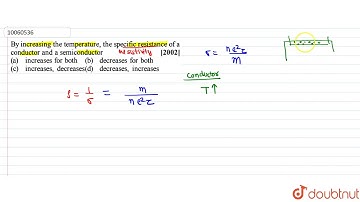 10060536
By increasing the temperature, the specific resistance of a
conductor and a semiconductor resistivity [2002]
(a) increases for both (b) decreases for both
(c) increases, decreases(d) decreases, increases
σ = ne²τ / m
Conductor
T↑
ρ = 1/σ = m / ne²τ
doubtnut